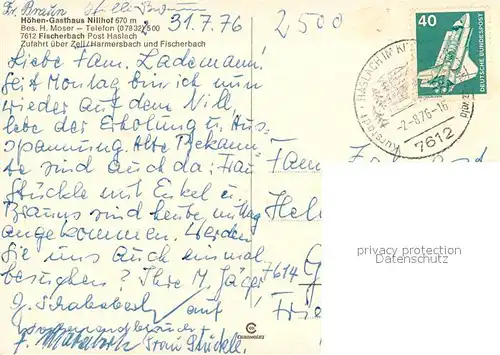 Fr. Braun
31.7.76
2500
Höhen-Gasthaus Nillhof 670 m
Bes. H. Moser – Telefon (07832) 500
7612 Fischerbach Post Haslach
Zufahrt über Zell / Harmersbach und Fischerbach
Liebe Fam. Lademann!
Seit Montag bin ich nun
wieder auf dem Nill,
lebe der Erholung u. Aus-
spannung. Alte Bekann-
te sind auch da: Frau
Stückle mit Enkel u.
Brauns sind heute mittag
angekommen. Werden
Sie uns auch einmal
besuchen? Ihre M. Jäger
auf
Frau Stückle.
40
DEUTSCHE BUNDESPOST
HASLACH IM
-2-8.76-16
7612
Fam
Hel
7614 G
privacy protection
www.oldthing.de